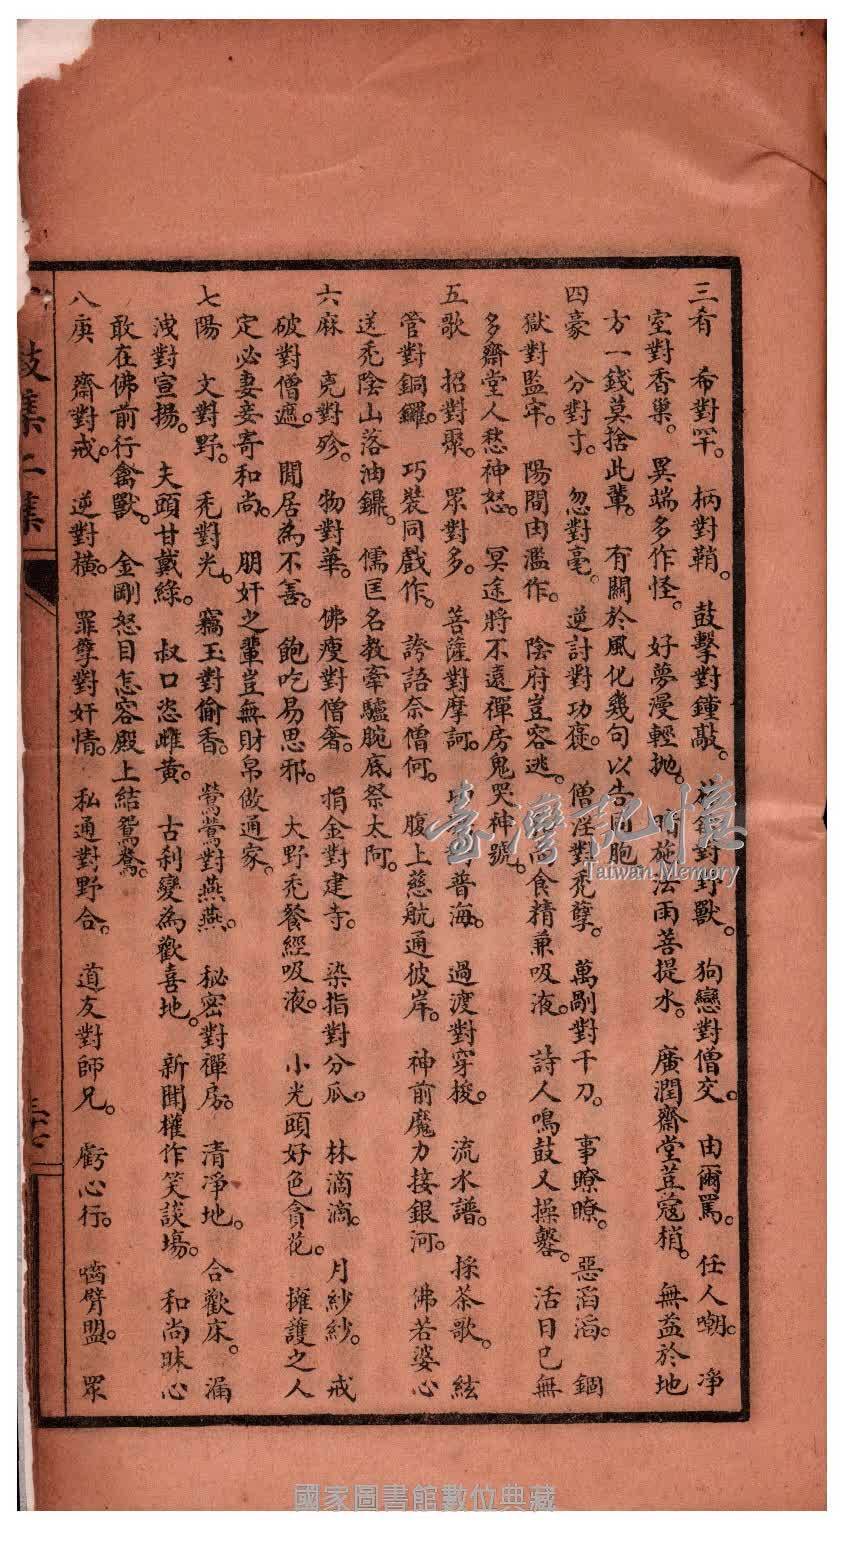 三肴　希對罕。柄對鞘。鼓擊對鐘敲。　對野獸。狗戀對僧交。由爾罵。任人嘲。淨
室對香巢。異端多作怪。好夢漫輕拋。　施法雨菩提水。廣潤齋堂荳蔻梢。無益於地
方一錢莫捨此輩。有關於風化幾句以告同胞。
四豪　分對寸。忽對毫。逆討對功褒。僧淫對禿孽。萬剮對千刀。事瞭瞭。惡滔滔。錮
獄對監牢。陽間由濫作。陰府豈容逃。　食精兼吸液。詩人鳴鼓又操磬。活日已無
多齋堂人愁神怒。冥途將不遠禪房鬼哭神號。
五歌　招對聚。眾對多。菩薩對摩訶。　普海。過渡對穿梭。流水譜。採茶歌。絃
管對銅鑼。巧裝同戲作。誇語奈僧何。腹上慈航通彼岸。神前魔力接銀河。佛若婆心
送禿陰山落油鑊。儒匡名教牽驢腕底祭太阿。
六麻　克對殄。物對華。佛瘦對僧奢。捐金對建寺。染指對分瓜。林滴滴。月紗紗。戒
破對僧遮。閒居為不善。飽吃易思邪。大野禿餐經吸液。小光頭好色貪花。擁護之人
定必妻妾寄和尚。朋奸之輩豈無財帛做通家。
七陽　文對野。禿對光。竊玉對偷香。鶯鶯對燕燕。秘密對禪房。清淨地。合歡床。漏
洩對宣揚。夫頭甘戴綠。叔口恣雌黃。古刹變為歡喜地。新聞權作笑談場。和尚昧心
敢在佛前行禽獸。金剛怒目怎容殿上結鴛鴦。
八庚　齋對戒。逆對橫。罪孽對奸情。私通對野合。道友對師兄。虧心行。嚙臂盟。眾
鼓集二集
三十七
臺灣記憶
Taiwan Memory
國家圖書館數位典藏